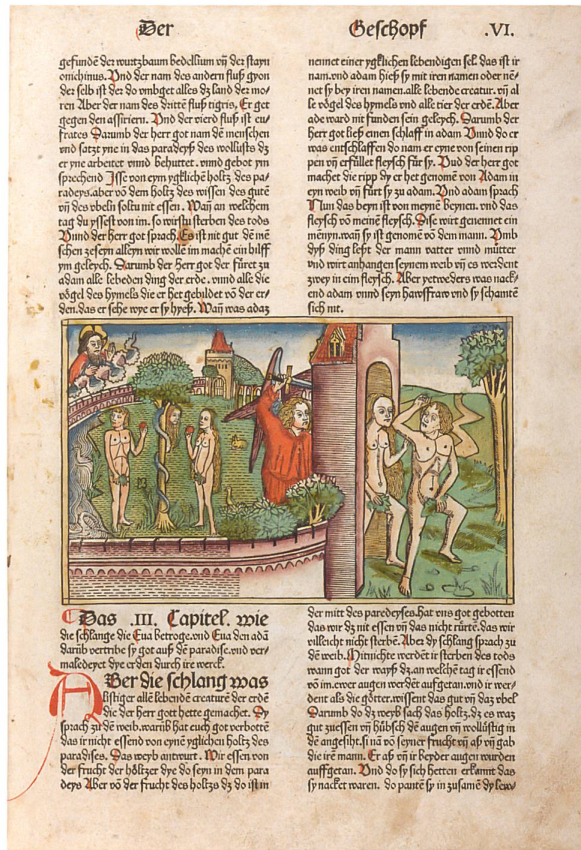 Der Geschopf .VI.
gefundē der wurtzbaum bedellium vñ der stayn
onichinus. Vnd der nam des andern fluß gyon
der selb ist der do vmbget alles dz land der mo⸗
ren Aber der nam des drittē fluß tigris, Er get
gegen den assiriern. Vnd der vierd fluß ist eu⸗
frates Darumb der herr got nam dē menschen
vnd satzt yne in das paradeyß des wollusts dz
er yne arbeitet vnnd behuttet. vnnd gebot ym
sprechend Isse von eym ygklichē holtz des pa⸗
radeys.aber võ dem holtz des wissen des gutē
vñ des vbeln soltu nit essen. Wañ an welchem
tag du yssest von im. so wirstu sterben des tods
Vnnd der herr got sprach. Es ist nit gut dē mē
schen zeseyn alleyn wir wolle im machē ein hilff
ym geleych. Darumb der herr got der fůret zu
adam alle lebeden ding der erde. vnnd alle die
vögel des hymels die er het gebildet võ der er⸗
den.das er sche wye er sy hyeß. Wañ was adaz
nennet einer ygklichen lebendigen sel. das ist ir
nam.vnd adam hieß sy mit iren namen oder nē⸗
net sy bey iren namen.alle lebende creatur. vñ al
le vögel des hymels vnd alle tier der erdē. Aber
ade ward nit funden sein geleych. Darumb der
herr got ließ einen schlaff in adam Vnnd do er
was entschlaffen do nam er eyne von seinen rip
pen vñ erfüllet fleysch für sy. Vnd der herr got
machet die ripp dy er het genomē von Adam in
eyn weib vñ fürt sy zu adam. Vnd adam sprach
Nun das beyn ist von meynē beynen. vnd das
fleysch võ meinē fleysch. Dise wirt genennet ein
mēnyn.wañ sy ist genomē võ dem mann. Vmb
dyß ding lest der mann vatter vnnd mütter
vnd wirt anhangen seynem weib vñ es werdent
zwey in eim fleysch. Aber yetweders was nack⸗
end adam vnnd seyn hawsfraw vnd sy schamtē
sich nit.
Das .III. Capitel. wie
die schlange die Eua betroge.vnd Eua den adā
darūb vertribe sy got auß dē paradise.vnd ver⸗
maledeyet dye erden durch ire werck.
ABer die schlang was
listiger allē lebendē creaturē der erdē
die der herr gott hette gemachet. Dy
sprach zu dē weib.warūb hat euch got verbottē
das ir nicht essend von eynē yglichen holtz des
paradises. Das weyb antwurt. Wir essen von
der frucht der höltzer dye do seyn in dem para
deys Aber võ der frucht des holtzs dz do ist in
der mitt des paredeyses.hat vns got gebotten
das wir dz nit essen vñ das nicht rürtē.das wir
villeicht nicht sterbē. Aber dy schlang sprach zu
dē weib. Mitnichte werdēt ir sterben des tods
wann got der wayß dz an welchē tag ir essend
võ im.ewer augen werdēt aufgetan.vnd ir wer⸗
dent als die götter.wissent das gut vñ dz vbel
Darumb do dz weyb sach das holtz.dz es waz
gut zuessen vñ hübsch dē augen vñ wollüstig in
dē angesiht.si nā võ seyner frucht vñ aß vñ gab
die irē mann. Er aß vñ ir beyder augen wurden
auffgetan. Vnd do sy sich hetten erkannt das
sy nacket waren. do pantē sy in zusamē dy lew⸗